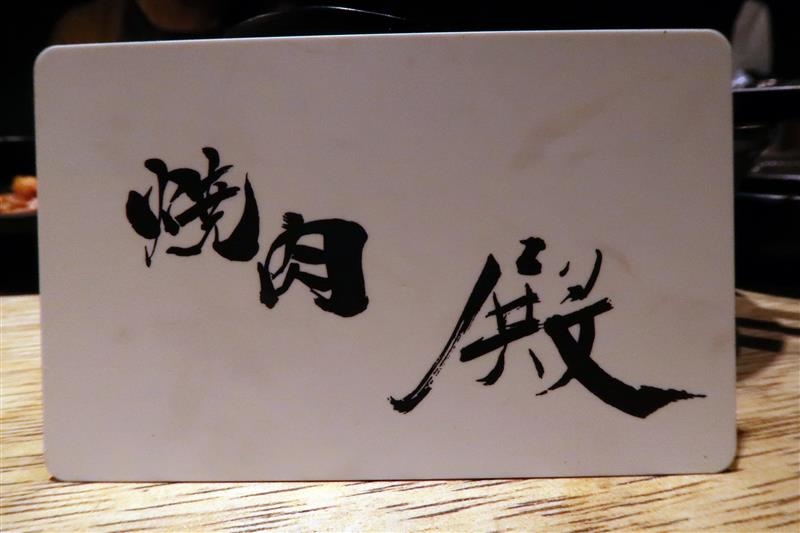 焼肉 殿